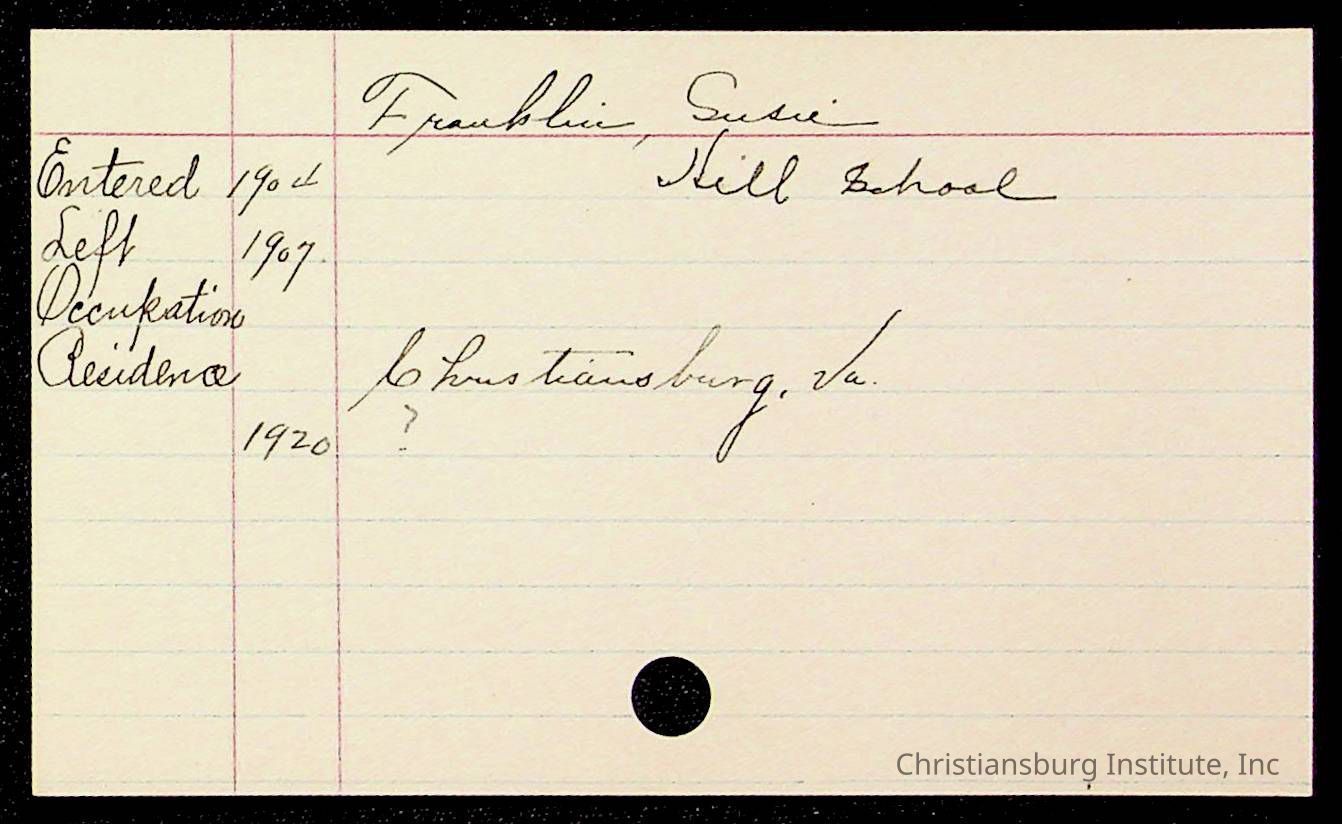 Franklin, Susie
Entered 1904 Hill School
Left 1907.
Occupation
Residence Christiansburg, Va.
1920 ?
Christiansburg Institute, Inc